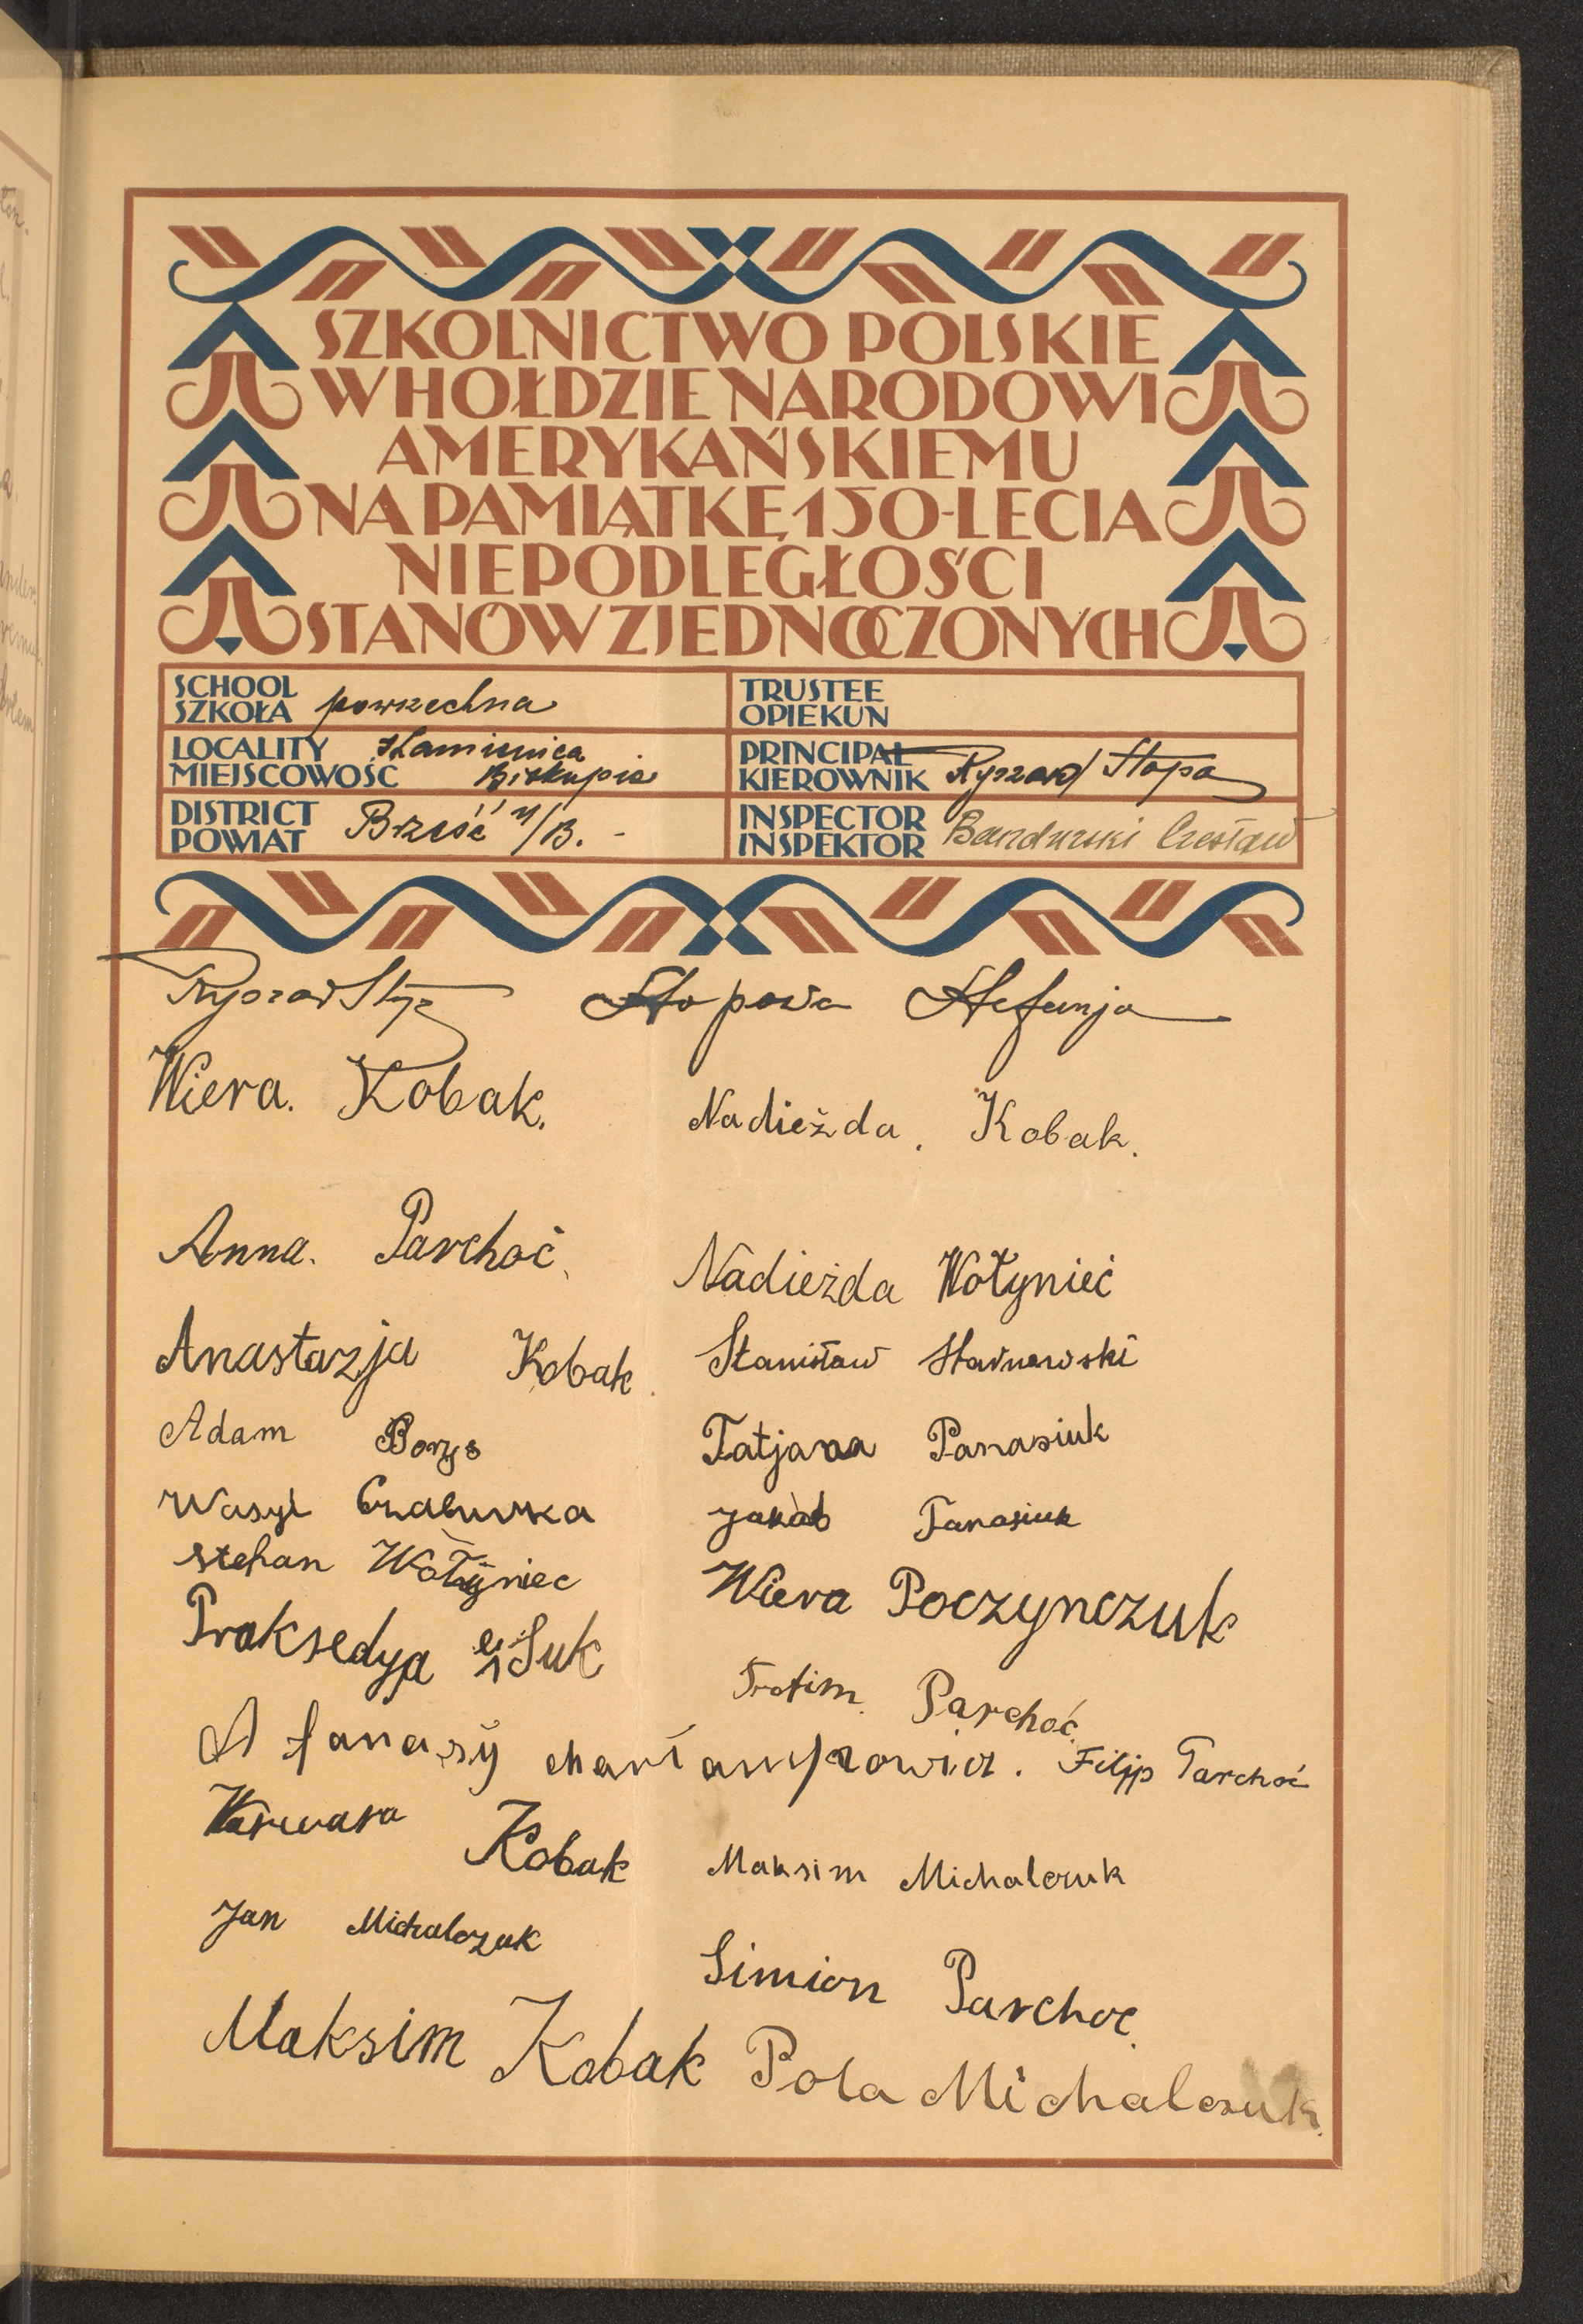 SZKOLNICTWO POLSKIE
W HOŁDZIE NARODOWI
AMERYKAŃSKIEMU
NA PAMIĄTKĘ 150-LECIA
NIEPODLEGŁOŚCI
STANÓW ZJEDNOCZONYCH
SCHOOL
SZKOŁA powszechna
TRUSTEE
OPIEKUN
LOCALITY
MIEJSCOWOŚĆ Kamienica Biskupia
PRINCIPAL
KIEROWNIK Ryszard Stopa
DISTRICT
POWIAT Brześć n/B. -
INSPECTOR
INSPEKTOR Bandurski Czesław
Stopowa Stefanja
Wiera. Kobak. Nadieżda. Kobak.
Anna. Parchoć. Nadieżda Wołynieć
Anastazja Kobak. Stanisław
Adam Borys Tatjana Panasiuk
Wasyl Jakób Panasiuk
Stepan Wołyniec Wiera Poczynczuk
Praksedya
Trofim Parchoć
Afanasy charłampowicz. Filip Parchoć
Warwara Kobak Maksim Michalczuk
Jan Michalczuk Simion Parchoc
Maksim Kobak Pola Michalczuk.